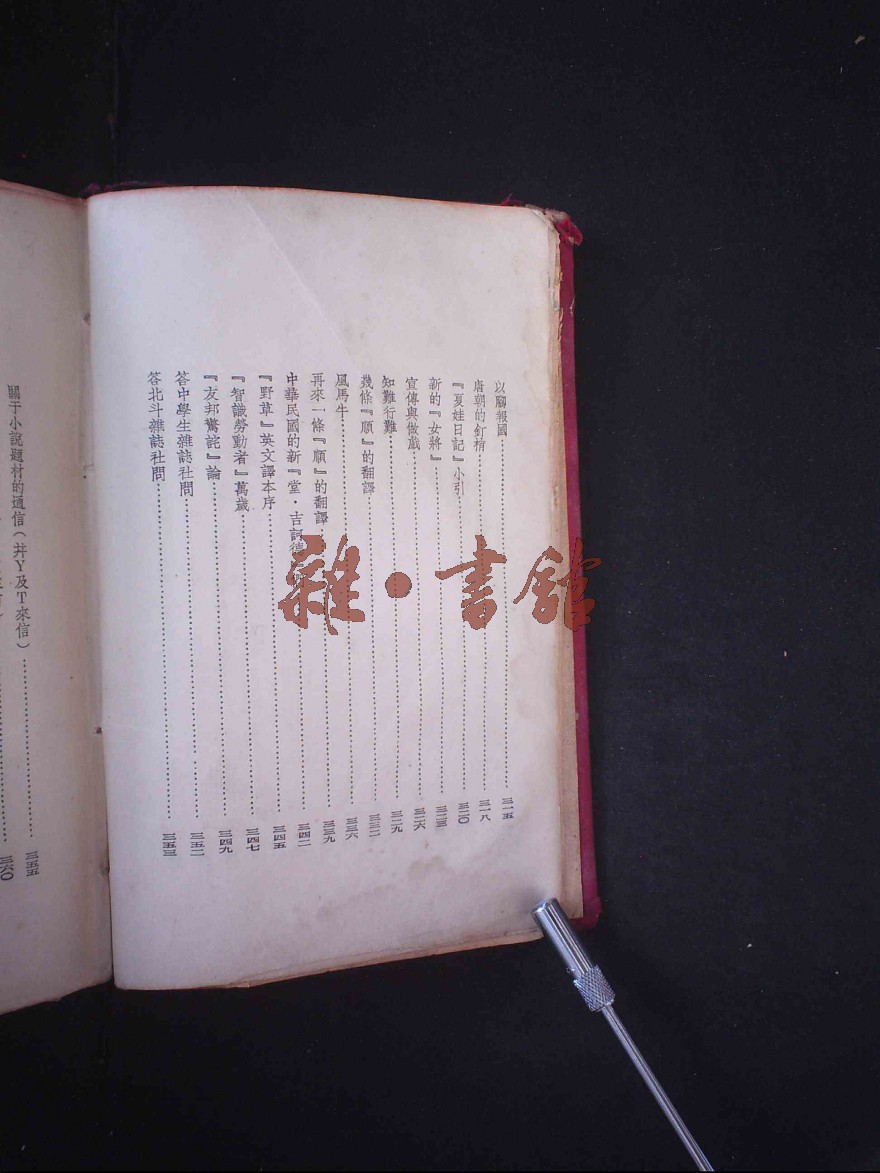 以腳報國……三一五
唐朝的釘梢……三一八
『夏娃日記』小引……三二〇
新的『女將』……三二三
宣傳與做戲……三二六
知難行難……三二九
幾條『順』的翻譯……三三二
風馬牛……三三六
再來一條『順』的翻譯……三三九
中華民國的新『堂・吉訶德……三四二
『野草』英文譯本序……三四五
『智識勞動者』萬歲……三四七
『友邦驚詫』論……三四九
答中學生雜誌社問……三五二
答北斗雜誌社問……三五三
關于小說題材的通信(幷Y及T來信)……三五五
三六〇
雜・書館